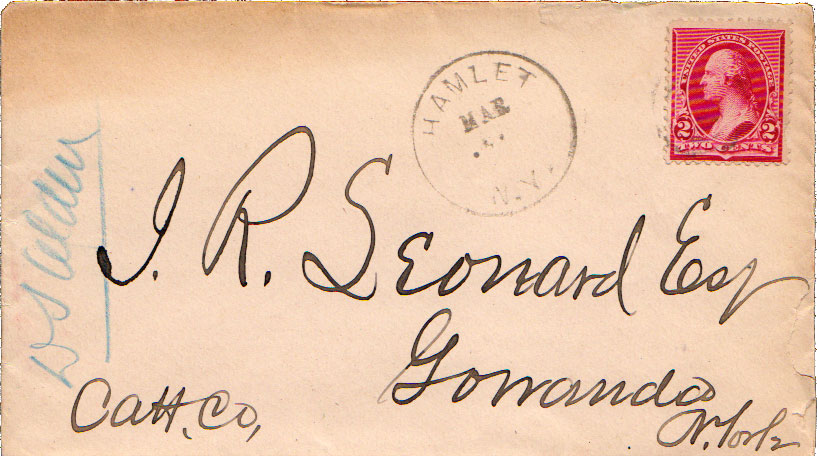 UNITED STATES POSTAGE
2 2
TWO CENTS
HAMLET
MAR
N.Y.
J. R. Leonard Esq
Gowanda
N. York
Catt. Co,
D S Alden